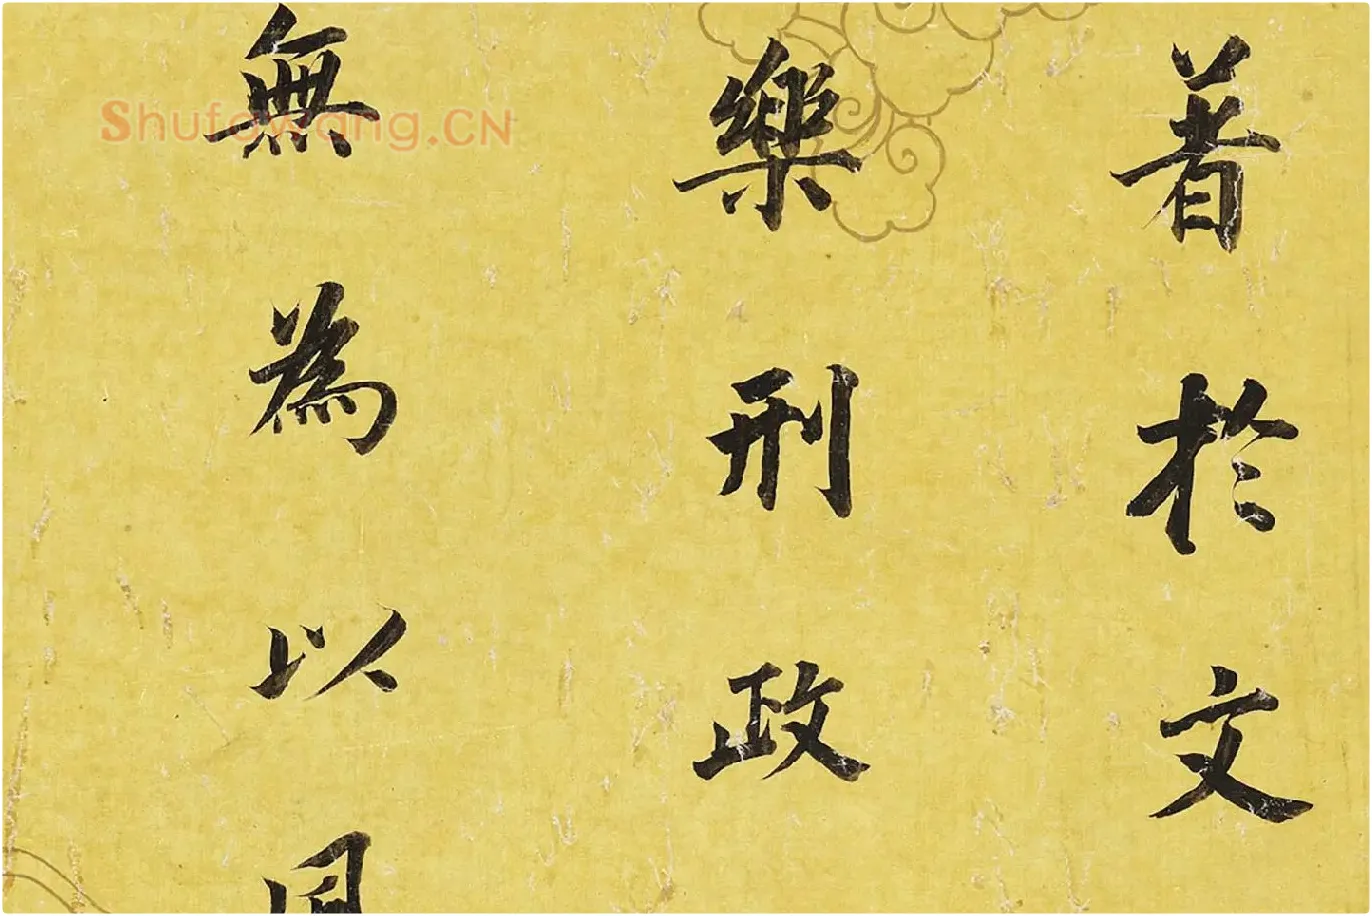 著於文
樂刑政
無為以
Shufawang.CN